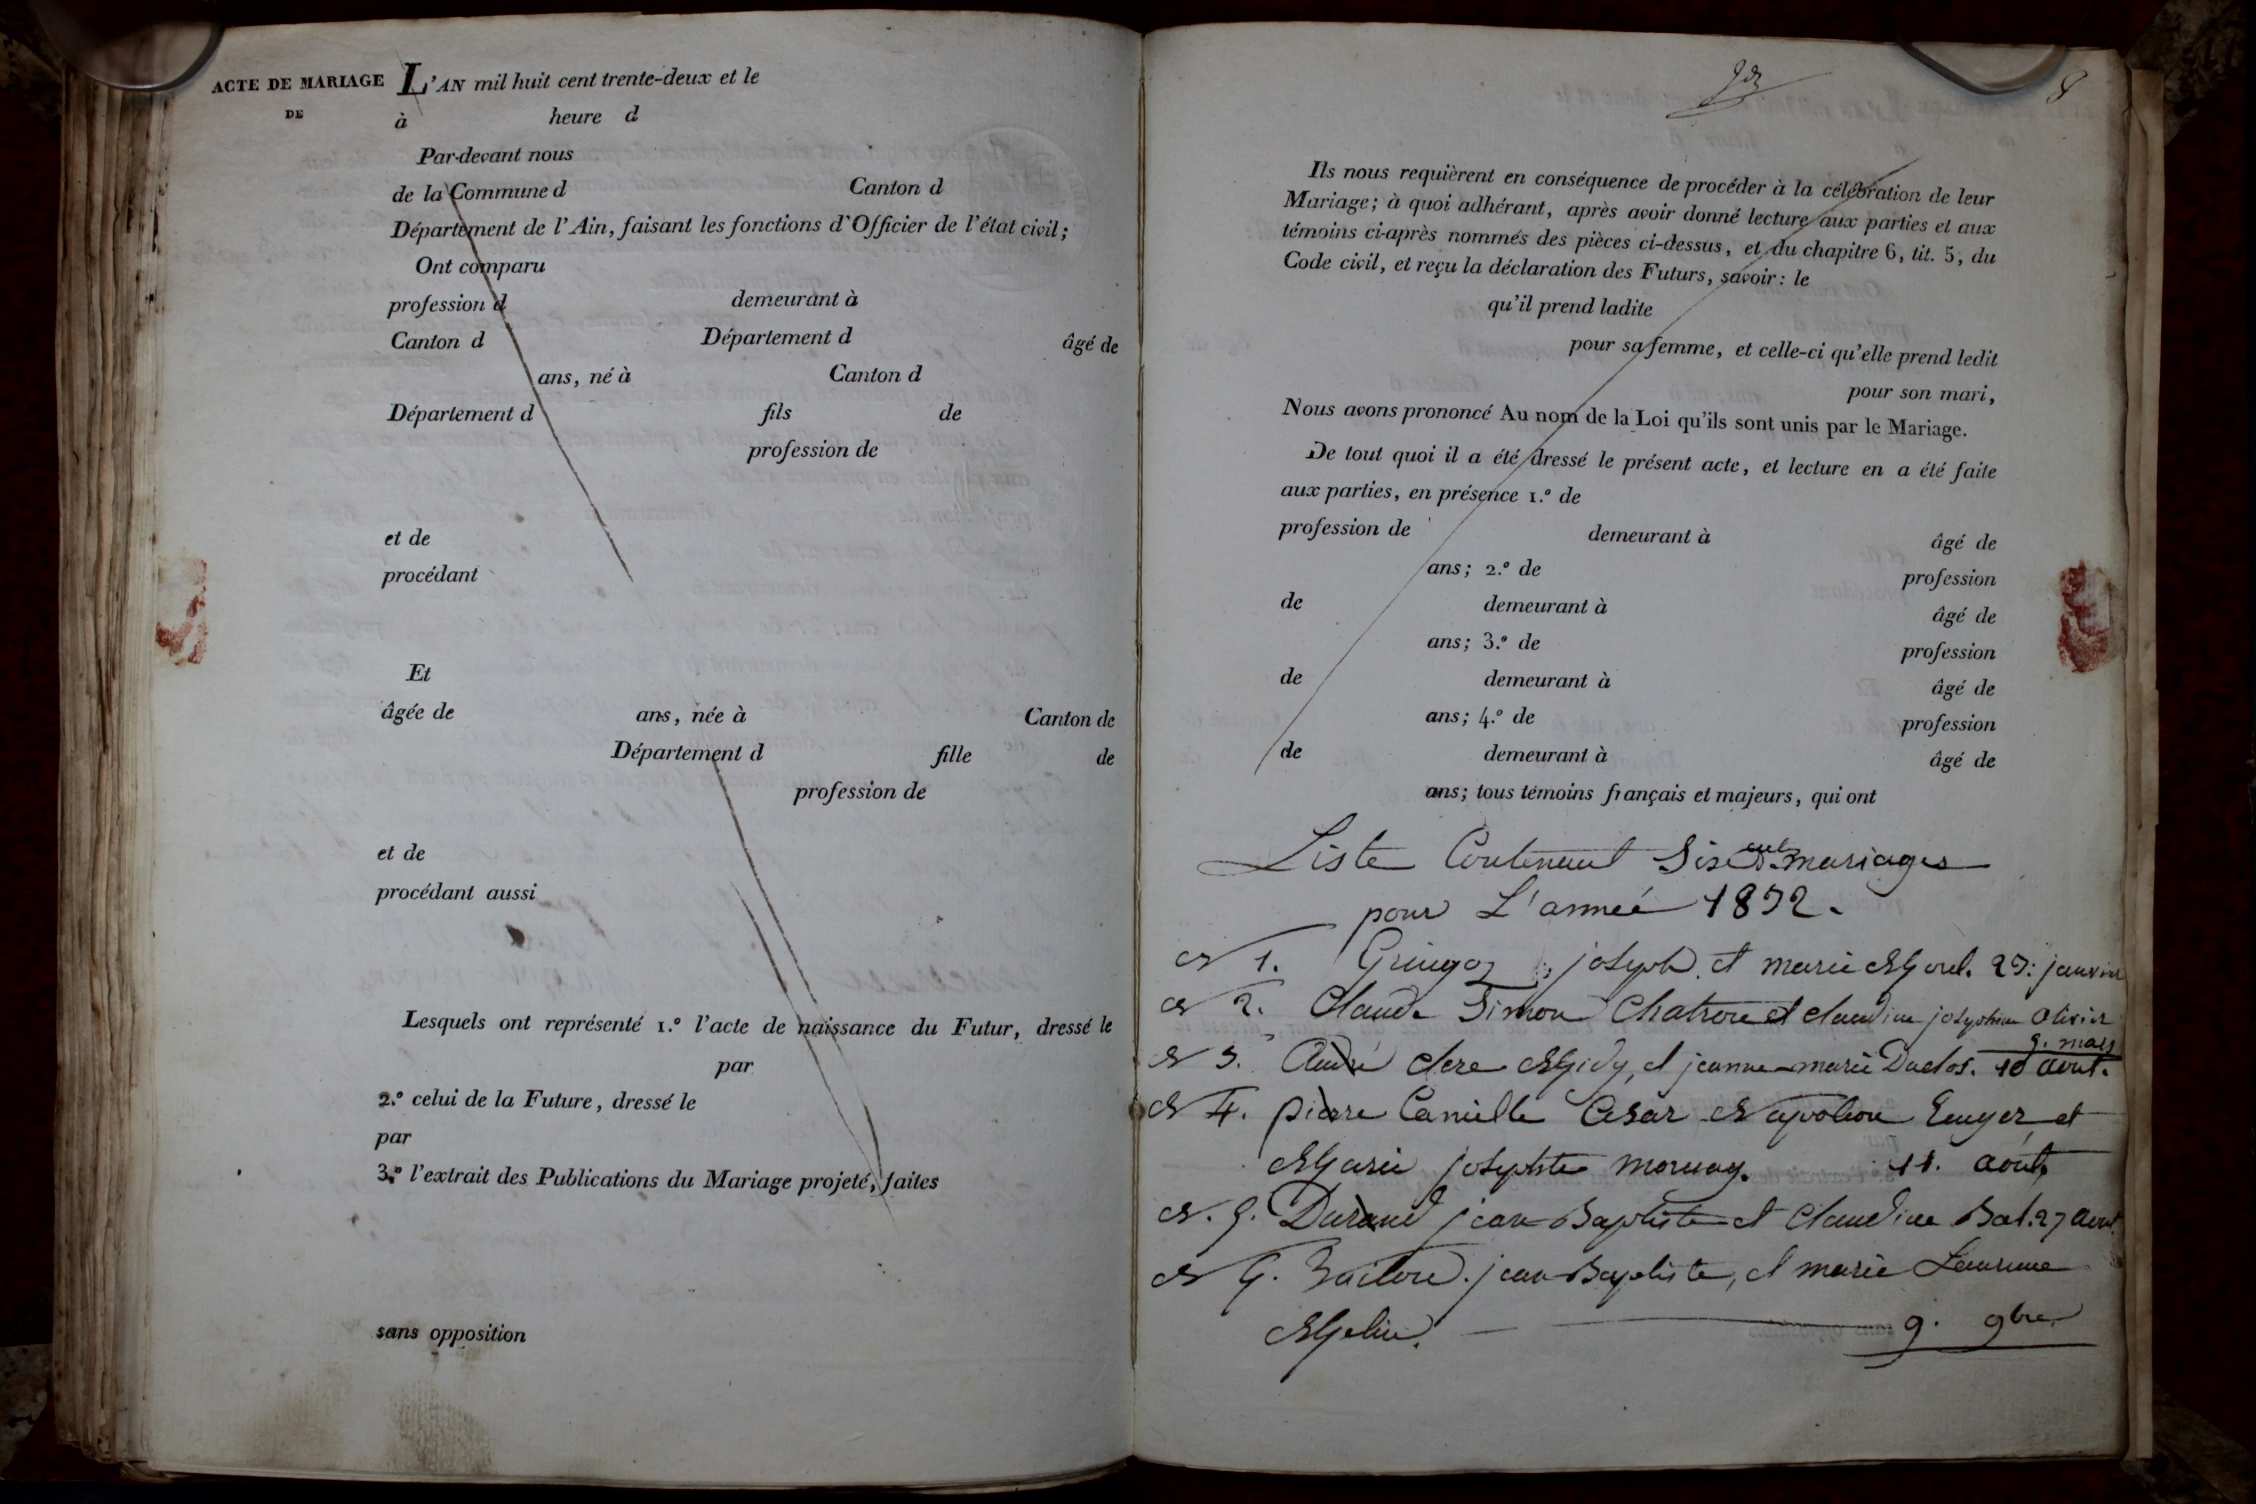 ACTE DE MARIAGE
DE
L'AN mil huit cent trente-deux et le
à heure d
Par-devant nous
de la Commune d Canton d
Département de l'Ain, faisant les fonctions d'Officier de l'état civil;
Ont comparu
profession d demeurant à
Canton d Département d âgé de
ans, né à Canton d
Département d fils de
profession de
et de
procédant
Et
âgée de ans, née à Canton de
Département d fille de
profession de
et de
procédant aussi
Lesquels ont représenté 1.º l'acte de naissance du Futur, dressé le
par
2.º celui de la Future, dressé le
par
3.º l'extrait des Publications du Mariage projeté, faites
sans opposition
8
Ils nous requièrent en conséquence de procéder à la célébration de leur
Mariage; à quoi adhérant, après avoir donné lecture aux parties et aux
témoins ci-après nommés des pièces ci-dessus, et du chapitre 6, tit. 5, du
Code civil, et reçu la déclaration des Futurs, savoir: le
qu'il prend ladite
pour sa femme, et celle-ci qu'elle prend ledit
pour son mari,
Nous avons prononcé Au nom de la Loi qu'ils sont unis par le Mariage.
De tout quoi il a été dressé le présent acte, et lecture en a été faite
aux parties, en présence 1.º de
profession de demeurant à âgé de
ans; 2.º de profession
de demeurant à âgé de
ans; 3.º de profession
de demeurant à âgé de
ans; 4.º de profession
de demeurant à âgé de
ans; tous témoins français et majeurs, qui ont
Liste Contenant Six mariages
pour L'année 1832.
N 1. joseph et marie janvier
N 2. Claude Simon Chatron et claudine josephine Olivier
9. mars
N 3. André clere et jeanne marie Duclos. 10 aout.
N 4. pierre Camille Cesar Napoleon et
Marie josephte mornay. 11. août,
N. 5. Durand jean Baptiste et Claudine Bal. 27 aout
N 6. jean Baptiste, et marie
9. 9bre.